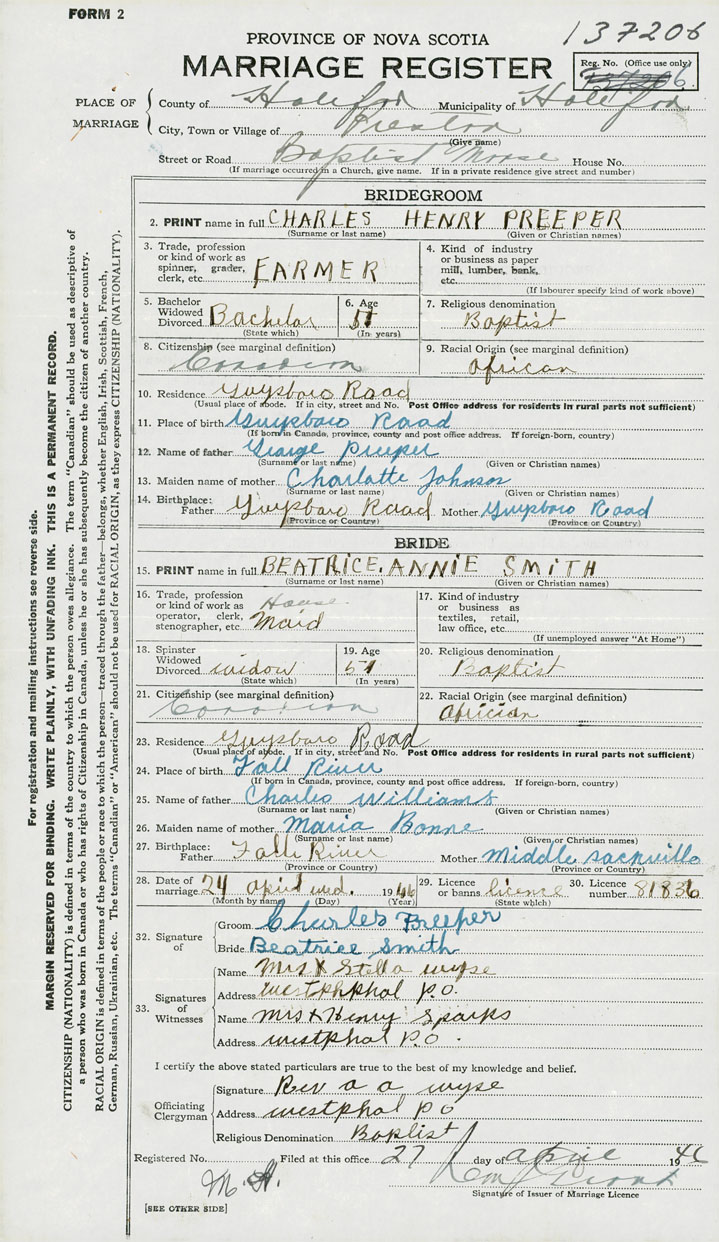 FORM 2
137206
PROVINCE OF NOVA SCOTIA
MARRIAGE REGISTER
Reg. No. (Office use only)
PLACE OF MARRIAGE
County of Halifax Municipality of Halifax
City, Town or Village of Preston
(Give name)
Street or Road Baptist House No.
(If marriage occurred in a Church, give name. If in a private residence give street and number)
BRIDEGROOM
2. PRINT name in full CHARLES HENRY PREEPER
(Surname or last name) (Given or Christian names)
3. Trade, profession or kind of work as spinner, grader, clerk, etc. FARMER
4. Kind of industry or business as paper mill, lumber, bank, etc.
(If labourer specify kind of work above)
5. Bachelor Widowed Divorced Bachelor
(State which)
6. Age 51
(In years)
7. Religious denomination
Baptist
8. Citizenship (see marginal definition)
Canadian
9. Racial Origin (see marginal definition)
African
10. Residence Guysboro Road
(Usual place of abode. If in city, street and No. Post Office address for residents in rural parts not sufficient)
11. Place of birth Guysboro Road
(If born in Canada, province, county and post office address. If foreign-born, country)
12. Name of father George Preeper
(Surname or last name) (Given or Christian names)
13. Maiden name of mother Charlotte Johnson
(Surname or last name) (Given or Christian names)
14. Birthplace: Father Guysboro Road Mother Guysboro Road
(Province or Country) (Province or Country)
BRIDE
15. PRINT name in full BEATRICE. ANNIE SMITH
(Surname or last name) (Given or Christian names)
16. Trade, profession or kind of work as operator, clerk, stenographer, etc. House Maid
17. Kind of industry or business as textiles, retail, law office, etc.
(If unemployed answer "At Home")
18. Spinster Widowed Divorced widow
(State which)
19. Age 51
(In years)
20. Religious denomination
Baptist
21. Citizenship (see marginal definition)
Canadian
22. Racial Origin (see marginal definition)
African
23. Residence Guysboro Road
(Usual place of abode. If in city, street and No. Post Office address for residents in rural parts not sufficient)
24. Place of birth Fall River
(If born in Canada, province, county and post office address. If foreign-born, country)
25. Name of father Charles Williams
(Surname or last name) (Given or Christian names)
26. Maiden name of mother Maria Bonne
(Surname or last name) (Given or Christian names)
27. Birthplace: Father Falls River Mother Middle Sackville
(Province or Country) (Province or Country)
28. Date of marriage 24 april wd. 1946
(Month by name) (Day) (Year)
29. Licence or banns licence
(State which)
30. Licence number 81836
32. Signature of
Groom Charles Preeper
Bride Beatrice Smith
33. Signatures of Witnesses
Name Mrs X Stella wyse
Address westphphal P.O.
Name Mrs X Henry Sparks
Address westphal P.O.
I certify the above stated particulars are true to the best of my knowledge and belief.
Officiating Clergyman
Signature Rev a a wyse
Address westphal P O
Religious Denomination Baptist
Registered No. Filed at this office 27 day of April 1946
Signature of Issuer of Marriage Licence
M. H.
[SEE OTHER SIDE]
For registration and mailing instructions see reverse side.
MARGIN RESERVED FOR BINDING. WRITE PLAINLY, WITH UNFADING INK. THIS IS A PERMANENT RECORD.
CITIZENSHIP (NATIONALITY) is defined in terms of the country to which the person owes allegiance. The term "Canadian" should be used as descriptive of
a person who was born in Canada or who has rights of Citizenship in Canada, unless he or she has subsequently become the citizen of another country.
RACIAL ORIGIN is defined in terms of the people or race to which the person—traced through the father—belongs, whether English, Irish, Scottish, French,
German, Russian, Ukrainian, etc. The terms "Canadian" or "American" should not be used for RACIAL ORIGIN, as they express CITIZENSHIP (NATIONALITY).